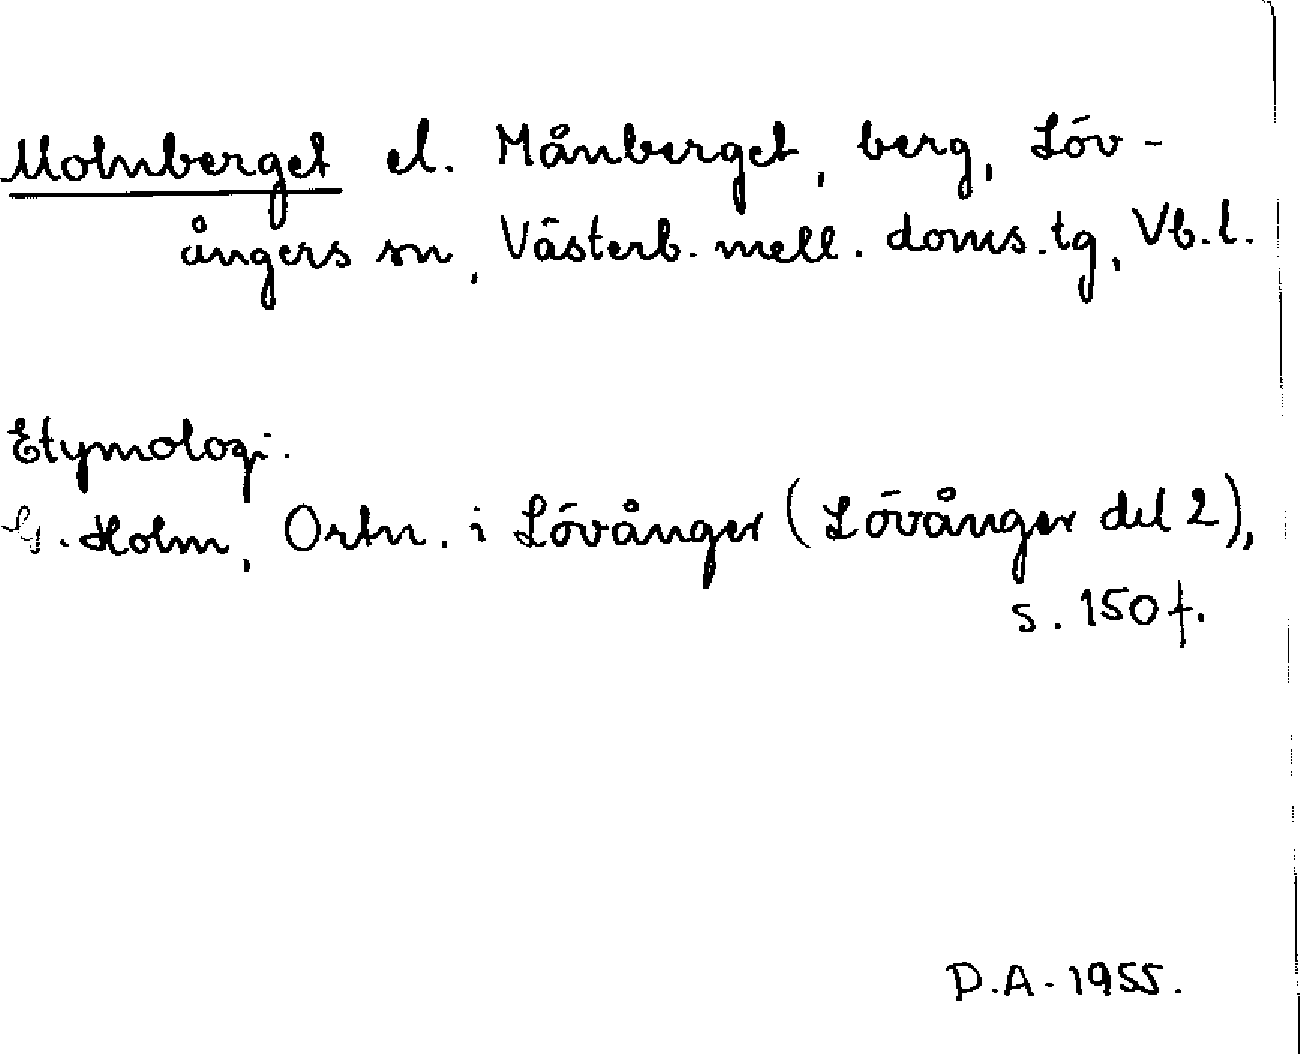 Molnberget el. Månberget, berg, Löv-
ångers sn, Västerb. mell. doms.tg, Vb.l.
Etymologi.
G. Holm, Ortn. i Lövånger (Lövånger del 2),
s. 150 f.
D.A. 1955.